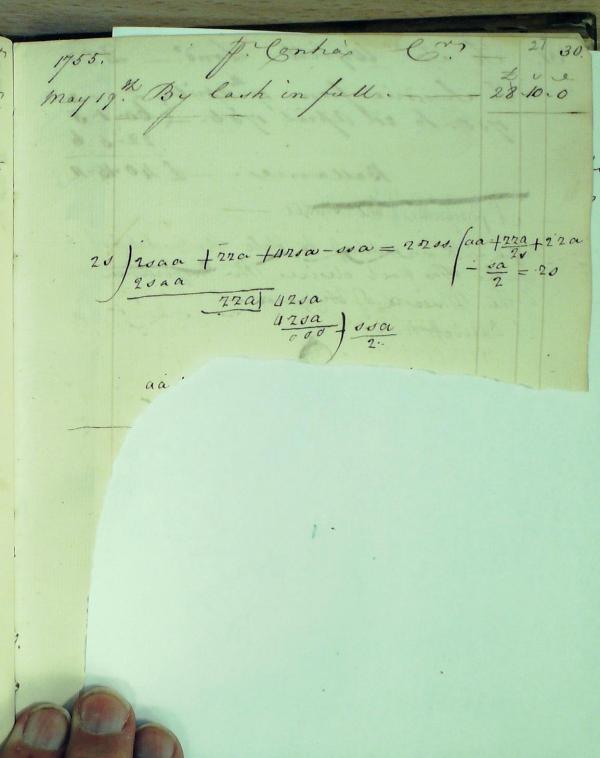 1755. Pr. Contra Cr. 21 30.
£ s d
May 19th. By Cash in full. 28.10.0
2s) 2saa + zza + 4zsa - ssa = 2zss. (aa + zza/2s + 2za
2saa - sa/2 = zs
zza| 4zsa
4zsa
000) + ssa/2.
aa